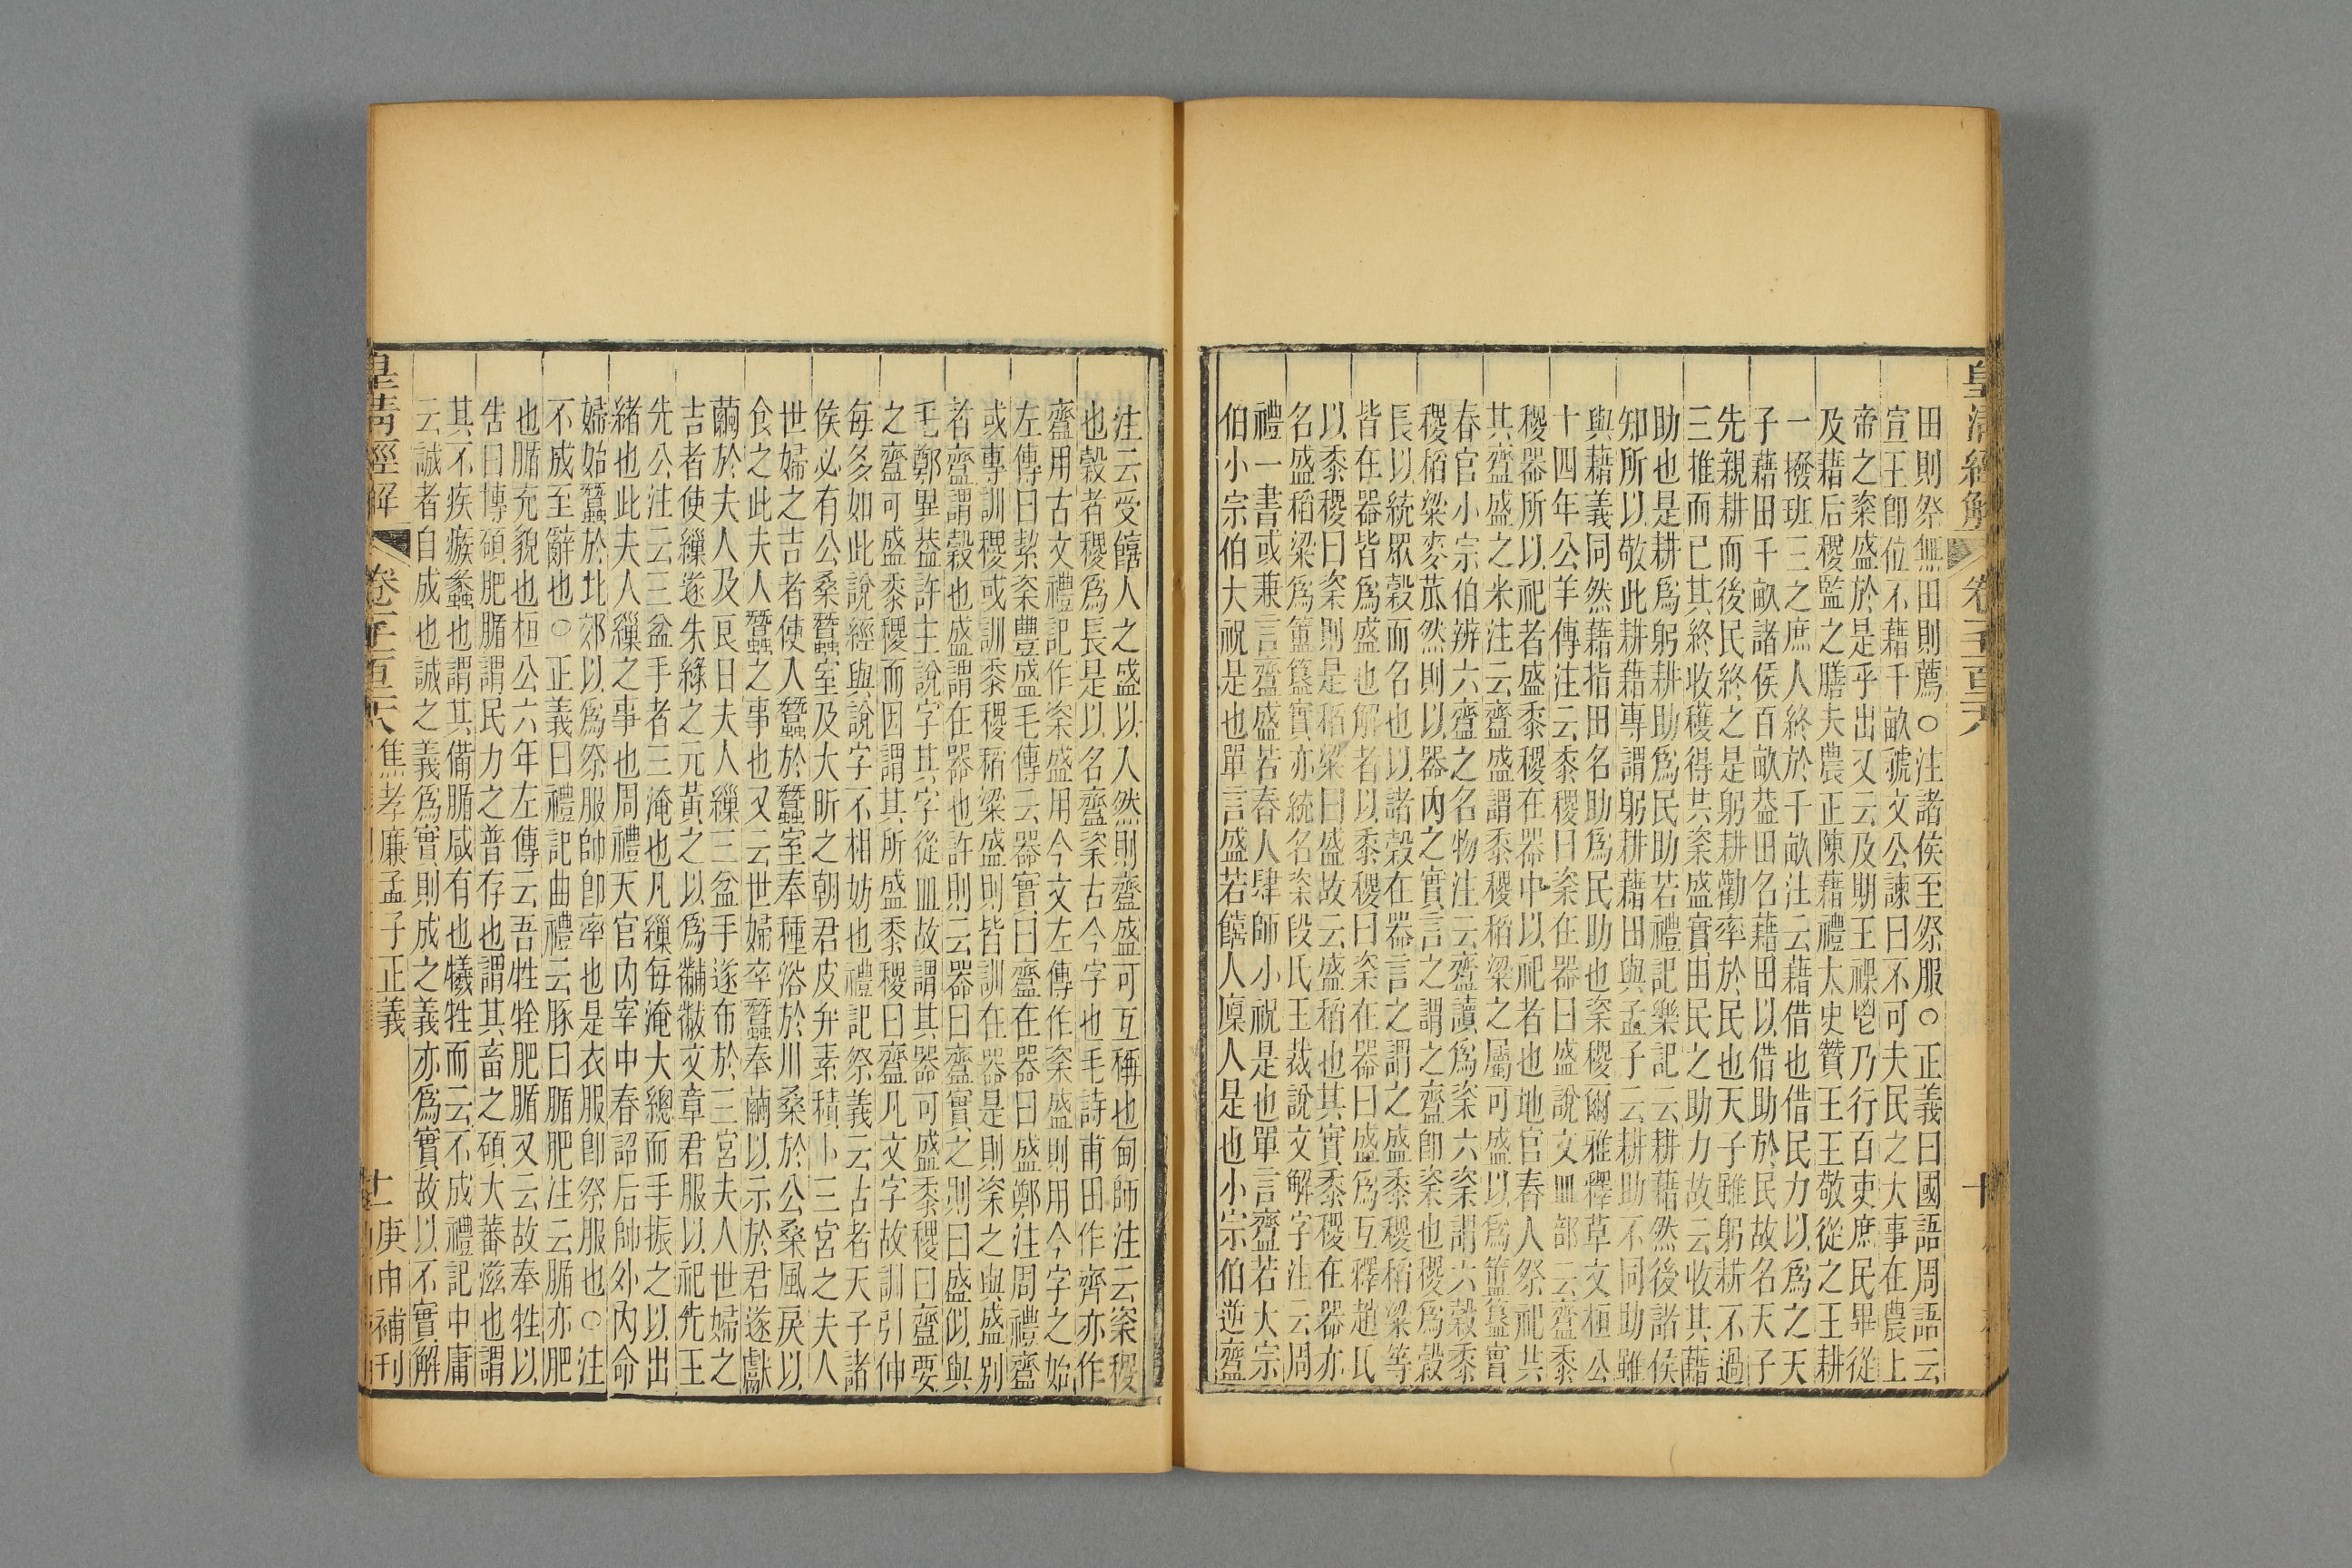 皇清經解 卷
田則祭無田則薦○注諸侯至祭服○正義曰國語周語云
宣王卽位不藉千畝虢文公諫曰不可夫民之大事在農上
帝之粢盛於是乎出又云及期王祼鬯乃行百吏庶民畢從
及藉后稷監之膳夫農正陳藉禮太史贊王王敬從之王耕
一撥班三之庶人終於千畝注云藉借也借民力以爲之天
子藉田千畝諸侯百畝葢田名藉田以借助於民故名天子
先親耕而後民終之是躬耕勸率於民也天子雖躬耕不過
三推而已其終收穫得共粢盛實由民之助力故云收其藉
助也是耕爲躬耕助爲民助若禮記樂記云耕藉然後諸侯
知所以敬此耕藉專謂躬耕藉田與孟子云耕助不同助雖
與藉義同然藉指田名助爲民助也粢稷爾雅釋草文桓公
十四年公羊傳注云黍稷曰粢在器曰盛說文皿部云齍黍
稷器所以祀者盛黍稷在器中以祀者也地官舂人祭祀共
其齍盛之米注云齍盛謂黍稷稻粱之屬可盛以爲簠簋實
春官小宗伯辨六齍之名物注云齍讀爲粢六粢謂六穀黍
稷稻粱麥苽然則以器內之實言之謂之齍卽粢也稷爲穀
長以統眾穀而名也以諸穀在器言之謂之盛黍稷稻粱等
皆在器皆爲盛也解者以黍稷曰粢在器曰盛爲互釋趙氏
以黍稷曰粢則是稻粱曰盛故云盛稻也其實黍稷在器亦
名盛稻粱爲簠簋實亦統名粢段氏王裁說文解字注云周
禮一書或兼言齍盛若舂人肆師小祝是也單言齍若大宗
伯小宗伯大祝是也單言盛若饎人廩人是也小宗伯逆齍
注云受饎人之盛以入然則齍盛可互稱也甸師注云粢稷
也穀者稷爲長是以名齍粢古今字也毛詩甫田作齊亦作
齍用古文禮記作粢盛用今文左傳作粢盛則用今字之始
左傳曰絜粢豐盛毛傳云器實曰齍在器曰盛鄭注周禮齍
或專訓稷或訓黍稷稻粱盛則皆訓在器是則粢之與盛別
者齍謂穀也盛謂在器也許則云器曰齍實之則曰盛似與
毛鄭異葢許主說字其字從皿故謂其器可盛黍稷曰齍要
之齍可盛黍稷而因謂其所盛黍稷曰齍凡文字故訓引伸
每多如此說經與說字不相妨也禮記祭義云古者天子諸
侯必有公桑蠶室及大昕之朝君皮弁素積卜三宮之夫人
世婦之吉者使入蠶於蠶室奉種浴於川桑於公桑風戾以
食之此夫人蠶之事也又云世婦卒蠶奉繭以示於君遂獻
繭於夫人及良日夫人繅三盆手遂布於三宮夫人世婦之
吉者使繅遂朱綠之元黃之以爲黼黻文章君服以祀先王
先公注云三盆手者三淹也凡繅每淹大總而手振之以出
緒也此夫人繅之事也周禮天官內宰中春詔后帥外內命
婦始蠶於北郊以爲祭服帥卽率也是衣服卽祭服也○注
不成至辭也○正義曰禮記曲禮云豚曰腯肥注云腯亦肥
也腯充貌也桓公六年左傳云吾牲牷肥腯又云故奉牲以
告曰博碩肥腯謂民力之普存也謂其畜之碩大蕃滋也謂
其不疾瘯蠡也謂其備腯咸有也犧牲而云不成禮記中庸
云誠者自成也誠之義爲實則成之義亦爲實故以不實解
皇清經解 卷 焦孝廉孟子正義 庚申補刊